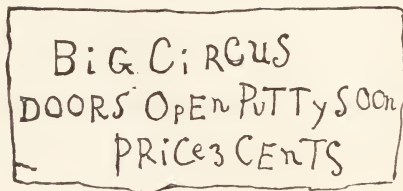 BiG CiRCUS
DOORS OPEn PUTTy SOOn
PRiCe 3 CEnTS